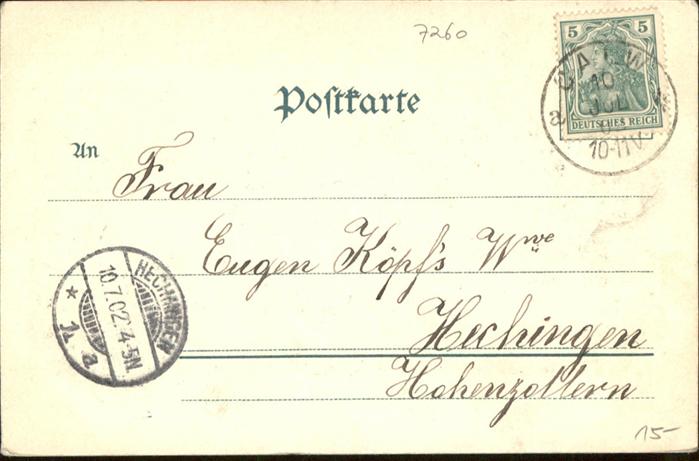 7260
5 5
DEUTSCHES REICH
CALW
10
JUL
10-11V
a
Postkarte
An
Frau
Eugen Köpf's Wwe
Hechingen
Hohenzollern
HECHINGEN
10.7.02.4-5N.
* 1. a
15-